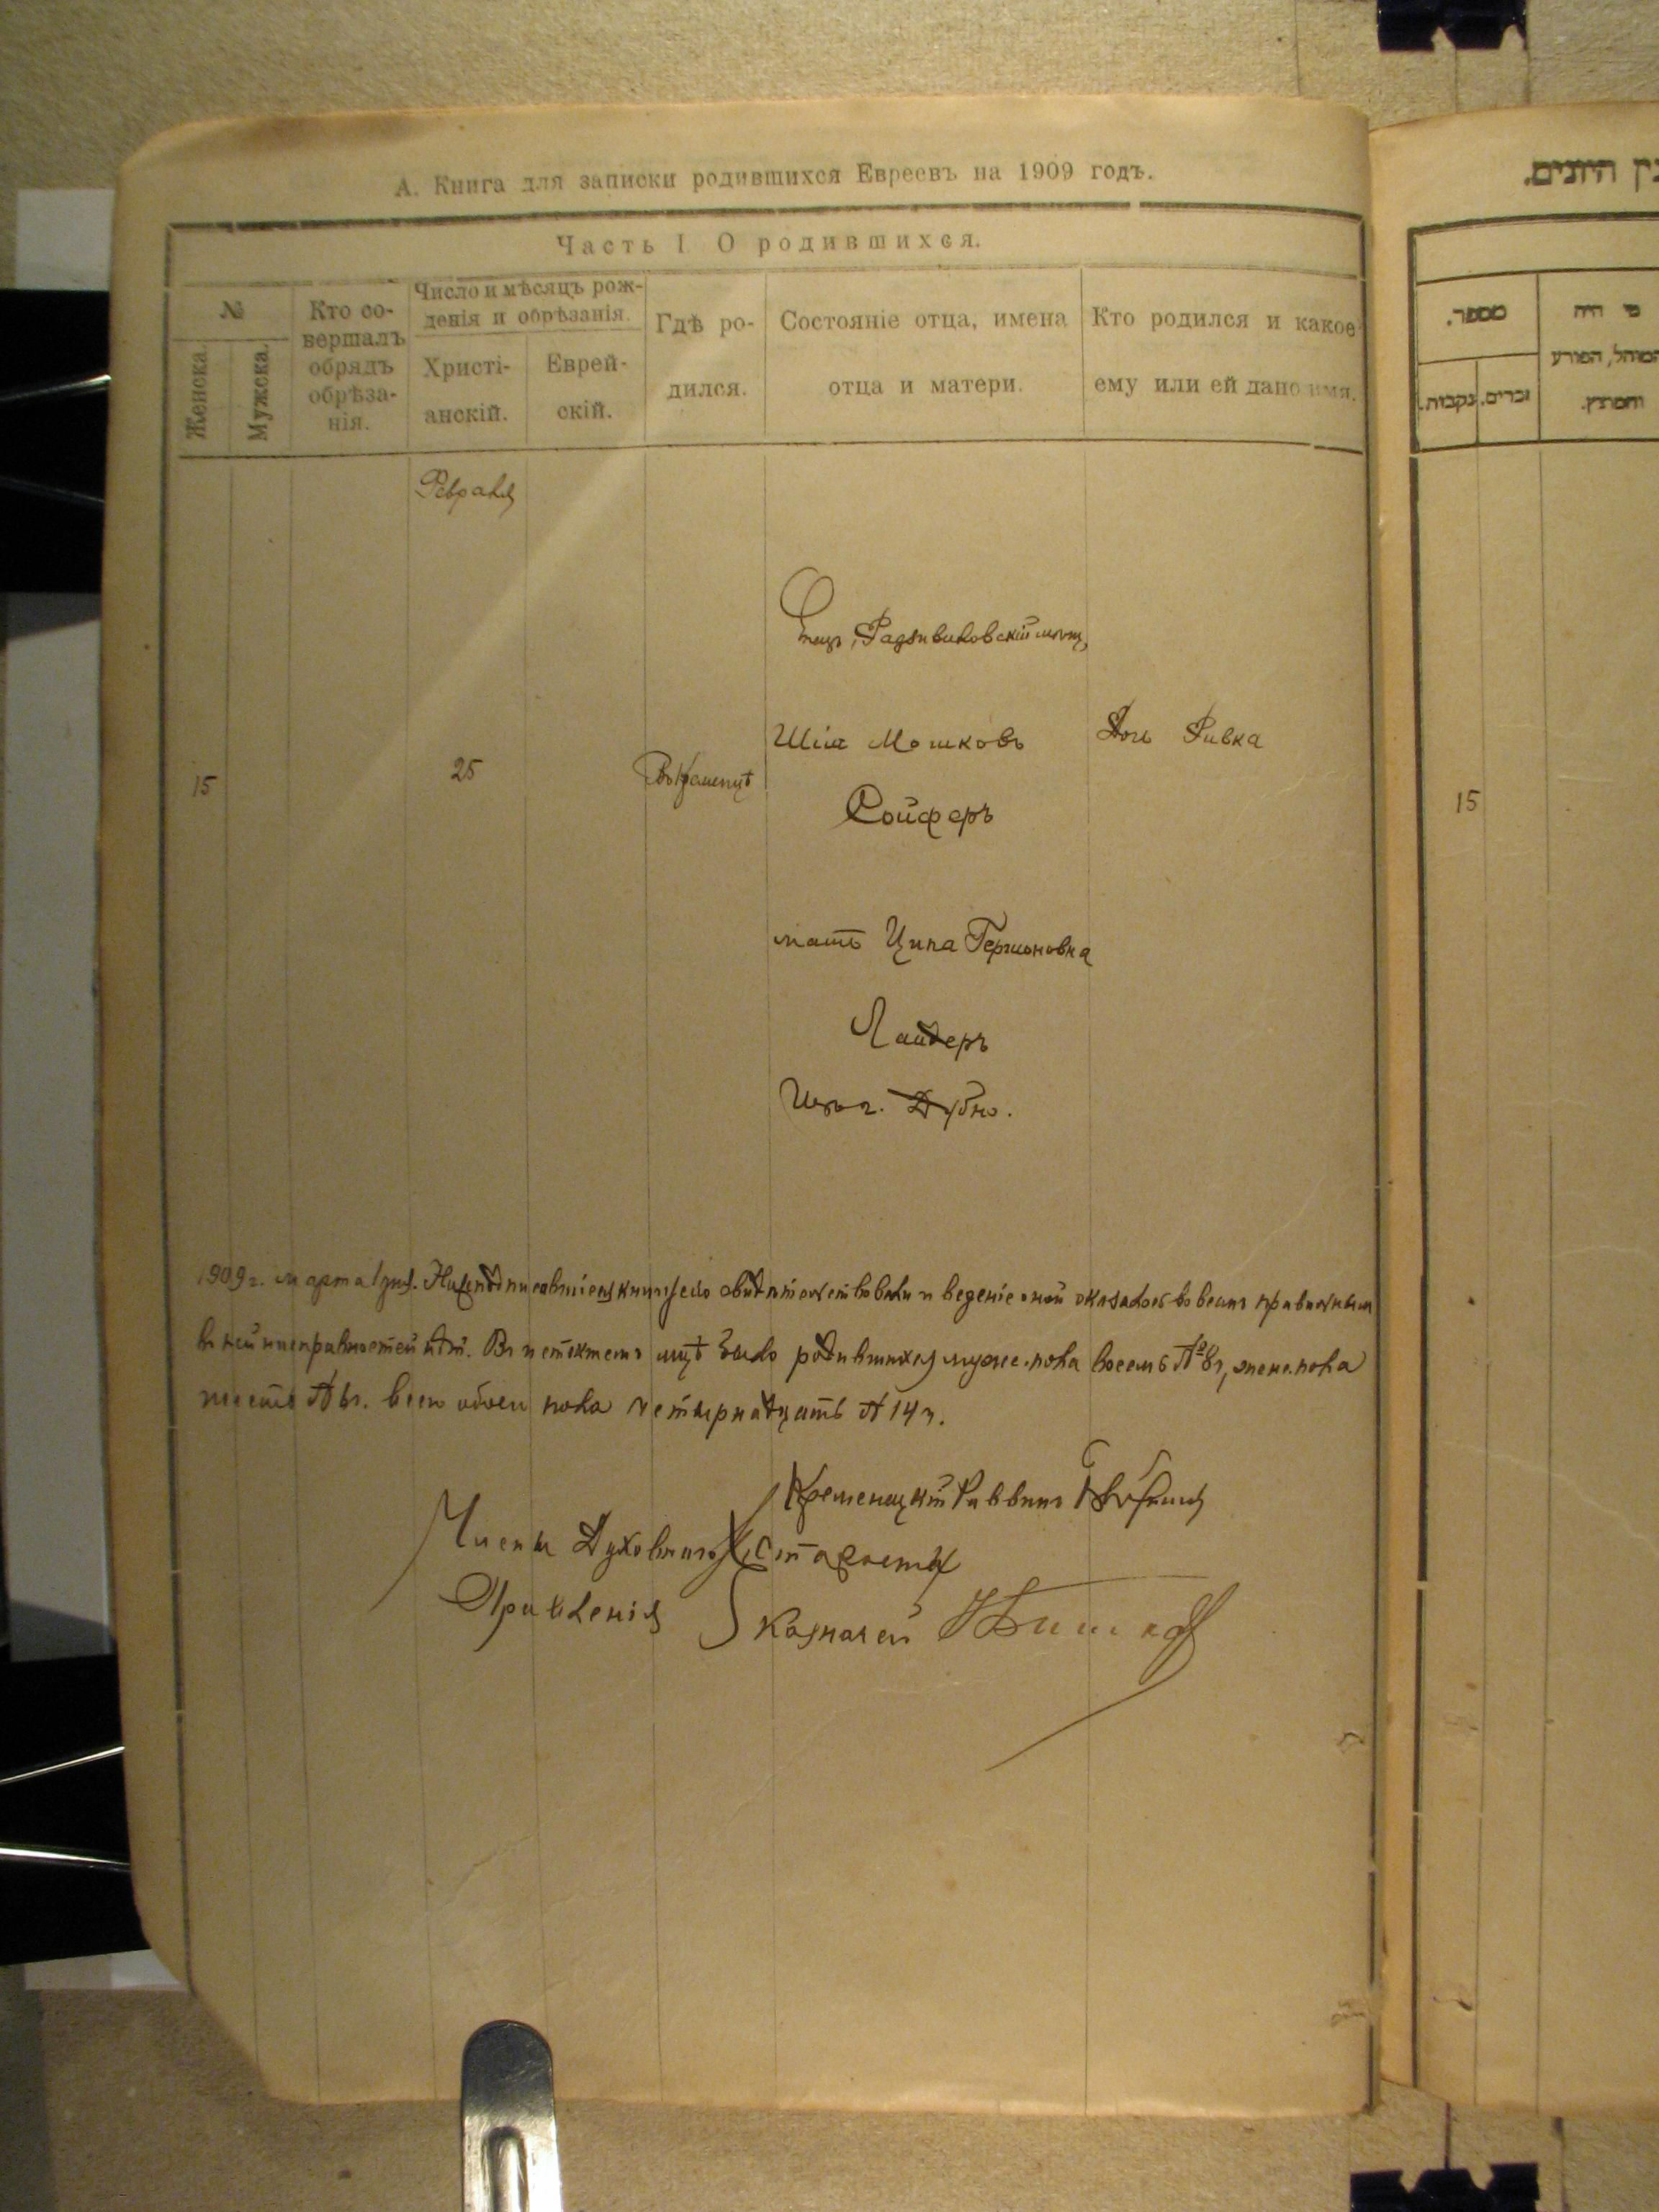 А. Книга для записки родившихся Евреевъ на 1909 годъ.
Часть I О родившихся.
№
Женска.
Мужска.
Кто со-
вершалъ
обрядъ
обрѣза-
нія.
Число и мѣсяцъ рож-
денія и обрѣзанія.
Христі-
анскій.
Еврей-
скій.
Гдѣ ро-
дился.
Состояніе отца, имена
отца и матери.
Кто родился и какое
ему или ей дано имя.
Февраля
Отецъ, Радзивиловскій мѣщ,
15
25
Въ Кременцѣ
Шія Мошковъ
Дочь Ривка
Сойферъ
мать Ципа Гершоновна
Ландеръ
Изъ г. Дубно.
1909 г. марта 1 дня. Нижеподписавшіеся книгу сію свидѣтельствовали и веденіе оной оказалось во всемъ правильнымъ
въ ней неисправностей нѣтъ. Въ истекшемъ м-цѣ было родившихся мужс. пола восемь № 8, женс. пола
шесть № 6. всего обоего пола четырнадцать № 14.
Кременецкій Раввинъ
Члены Духовнаго Староста
Правленія Казначей
ין היונים.
מספר.
זכרים.
נקבות.
מי היה
המוהל, הפורע
והמוצץ.
15